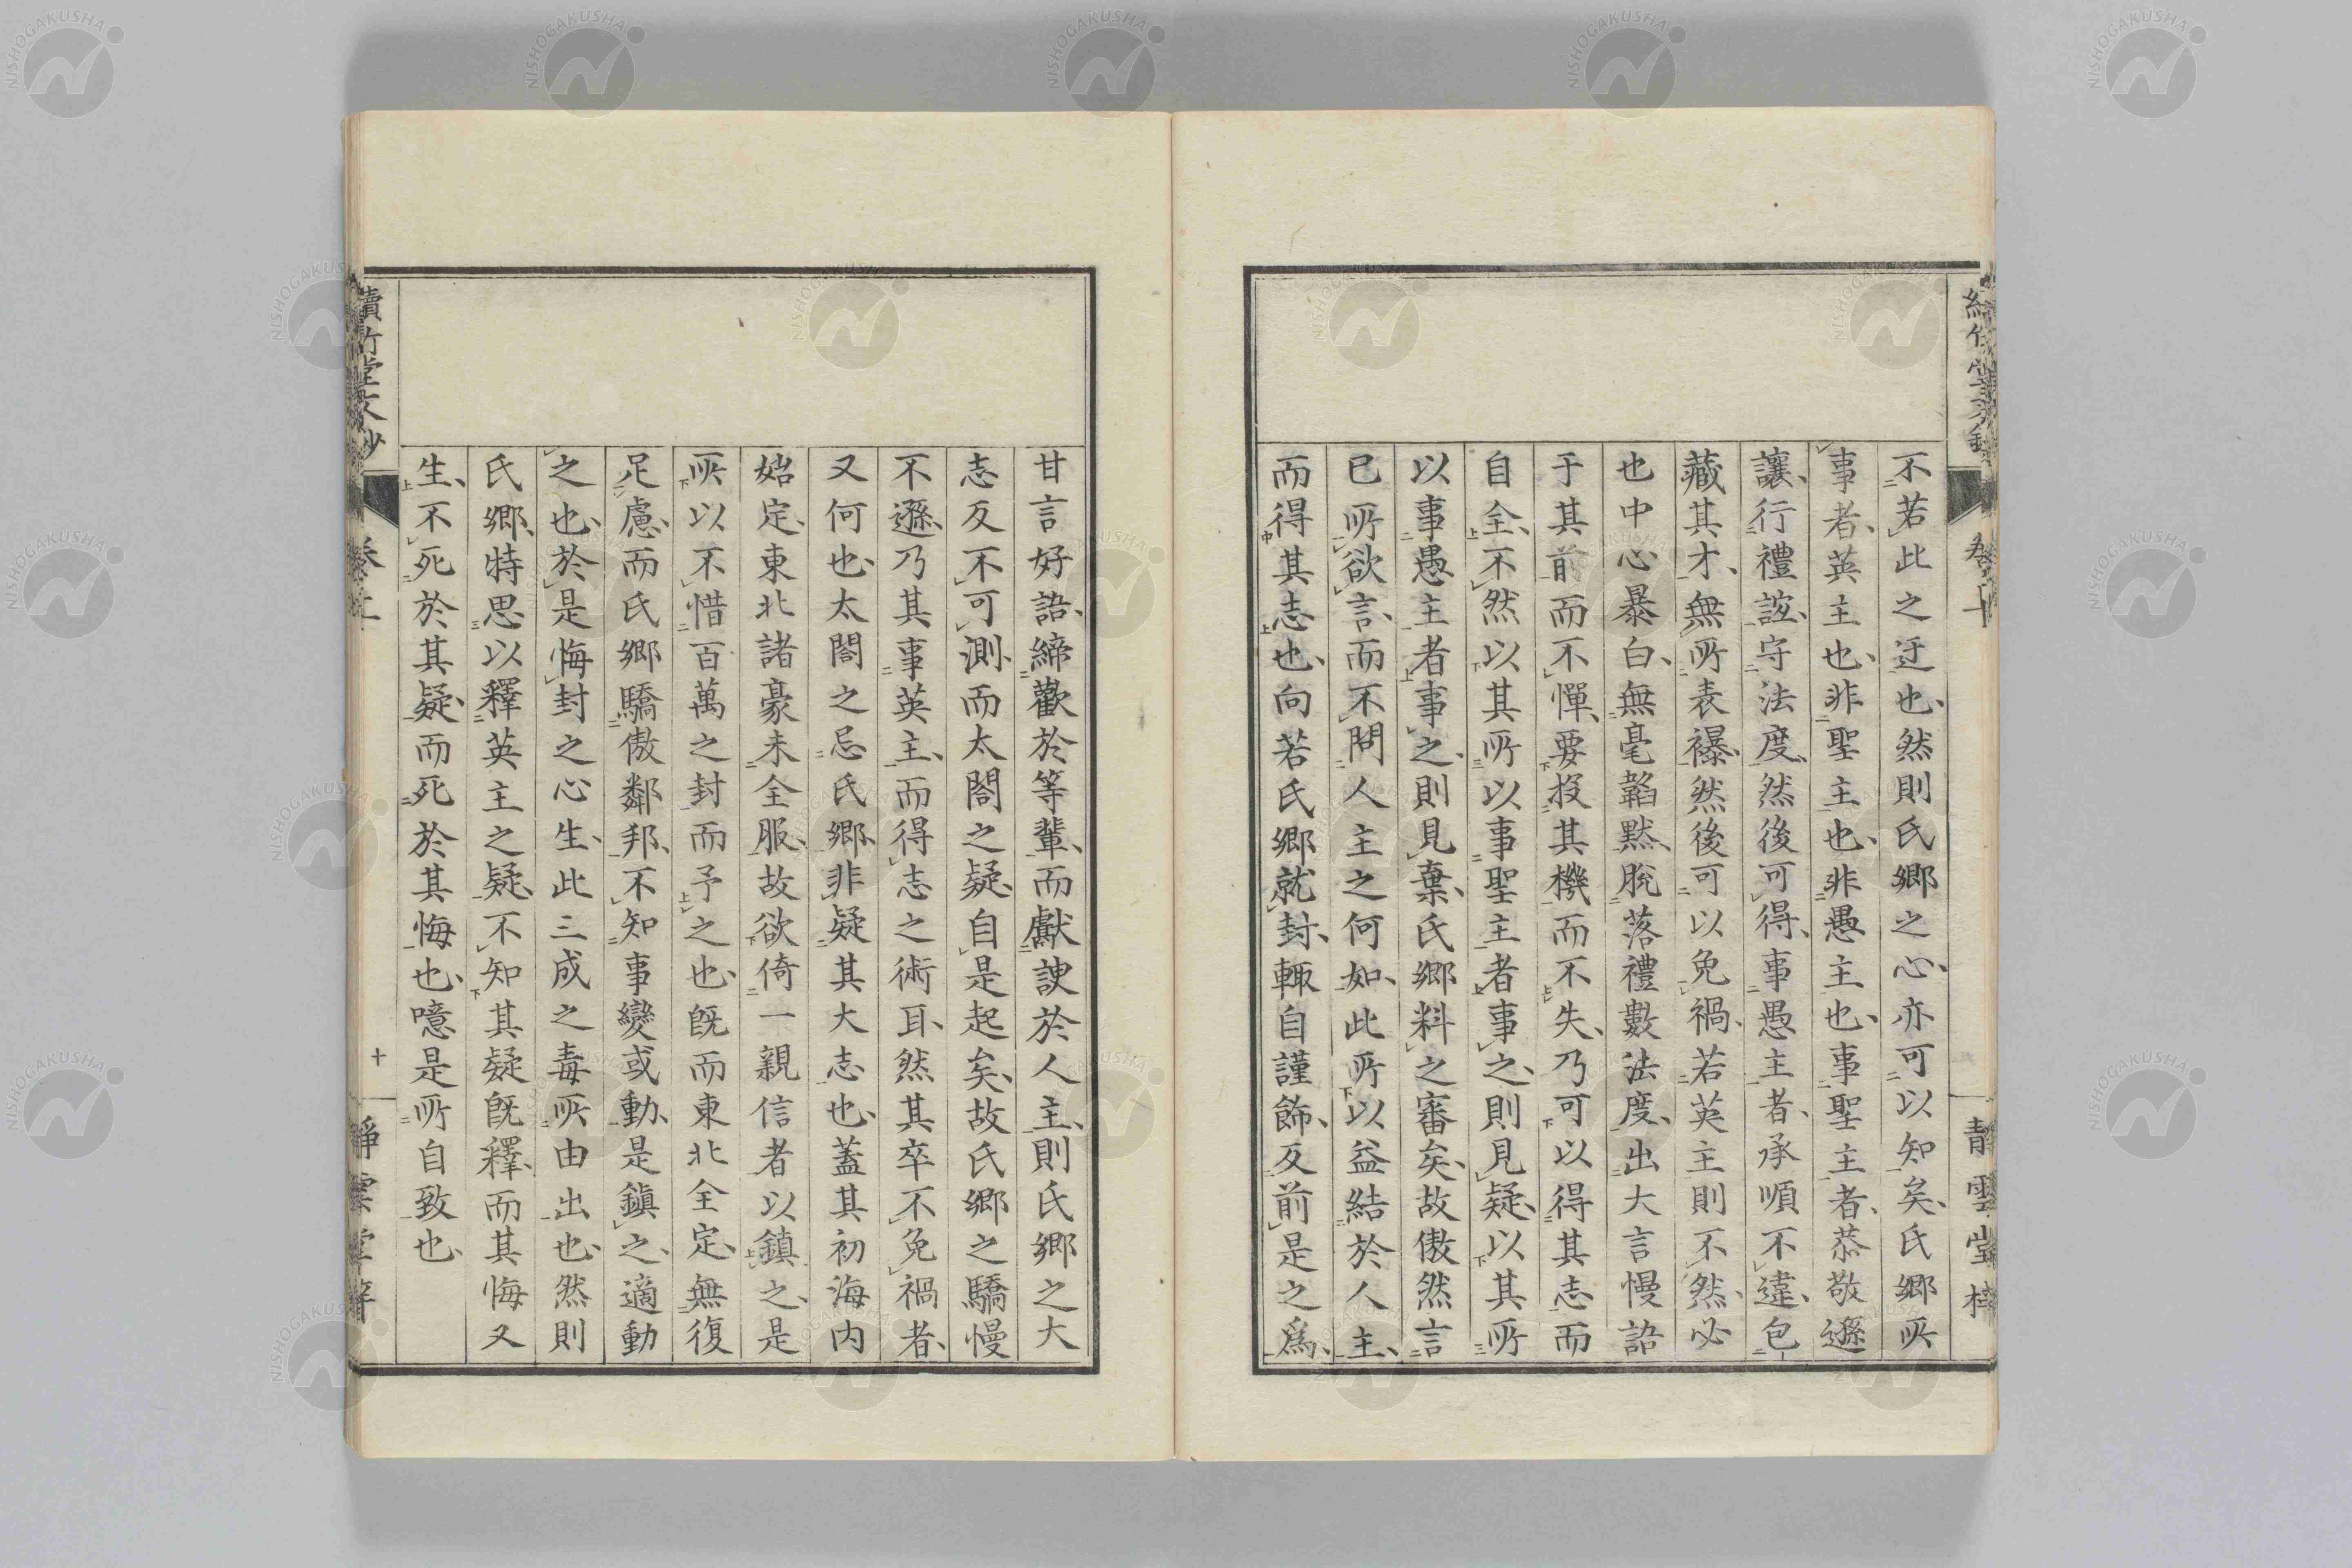 不若此之迂也、然則氏鄉之心、亦可以知矣、氏鄉所
事者、英主也、非聖主也、非愚主也、事聖主者、恭敬遜
讓、行禮誼、守法度、然後可得、事愚主者、承順不違、包
藏其才、無所表襮、然後可以免禍、若英主則不然、必
也中心暴白、無毫韜默、脫落禮數法度、出大言慢語
于其前而不憚、要投其機而不失、乃可以得其志而
自全、不然以其所以事聖主者事之、則見疑、以其所
以事愚主者事之、則見棄、氏鄉料之審矣、故傲然言
已所欲言、而不問人主之何如、此所以益結於人主、
而得其志也、向若氏鄉就封、輒自謹飾、反前是之爲、
甘言好語、締歡於等輩、而獻諛於人主、則氏鄉之大
志反不可測、而太閤之疑、自是起矣、故氏鄉之驕慢
不遜、乃其事英主、而得志之術耳、然其卒不免禍者、
又何也、太閤之忌氏鄉、非疑其大志也、蓋其初海內
始定、東北諸豪未全服、故欲倚一親信者以鎮之、是
所以不惜百萬之封而予之也、既而東北全定、無復
足慮、而氏鄉驕傲鄰邦、不知事變或動、是鎮之、適動
之也、於是悔封之心生、此三成之毒所由出也、然則
氏鄉、特思以釋英主之疑、不知其疑既釋、而其悔又
生、不死於其疑、而死於其悔也、噫是所自致也、
續竹堂文鈔
十
靜雲堂